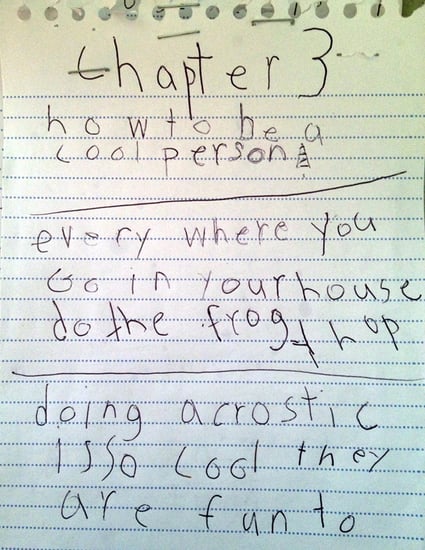 Chapter 3
how to be a
cool person!
every where you
Go in your house
do the frog hop
doing acrostic
is so cool they
are fun to